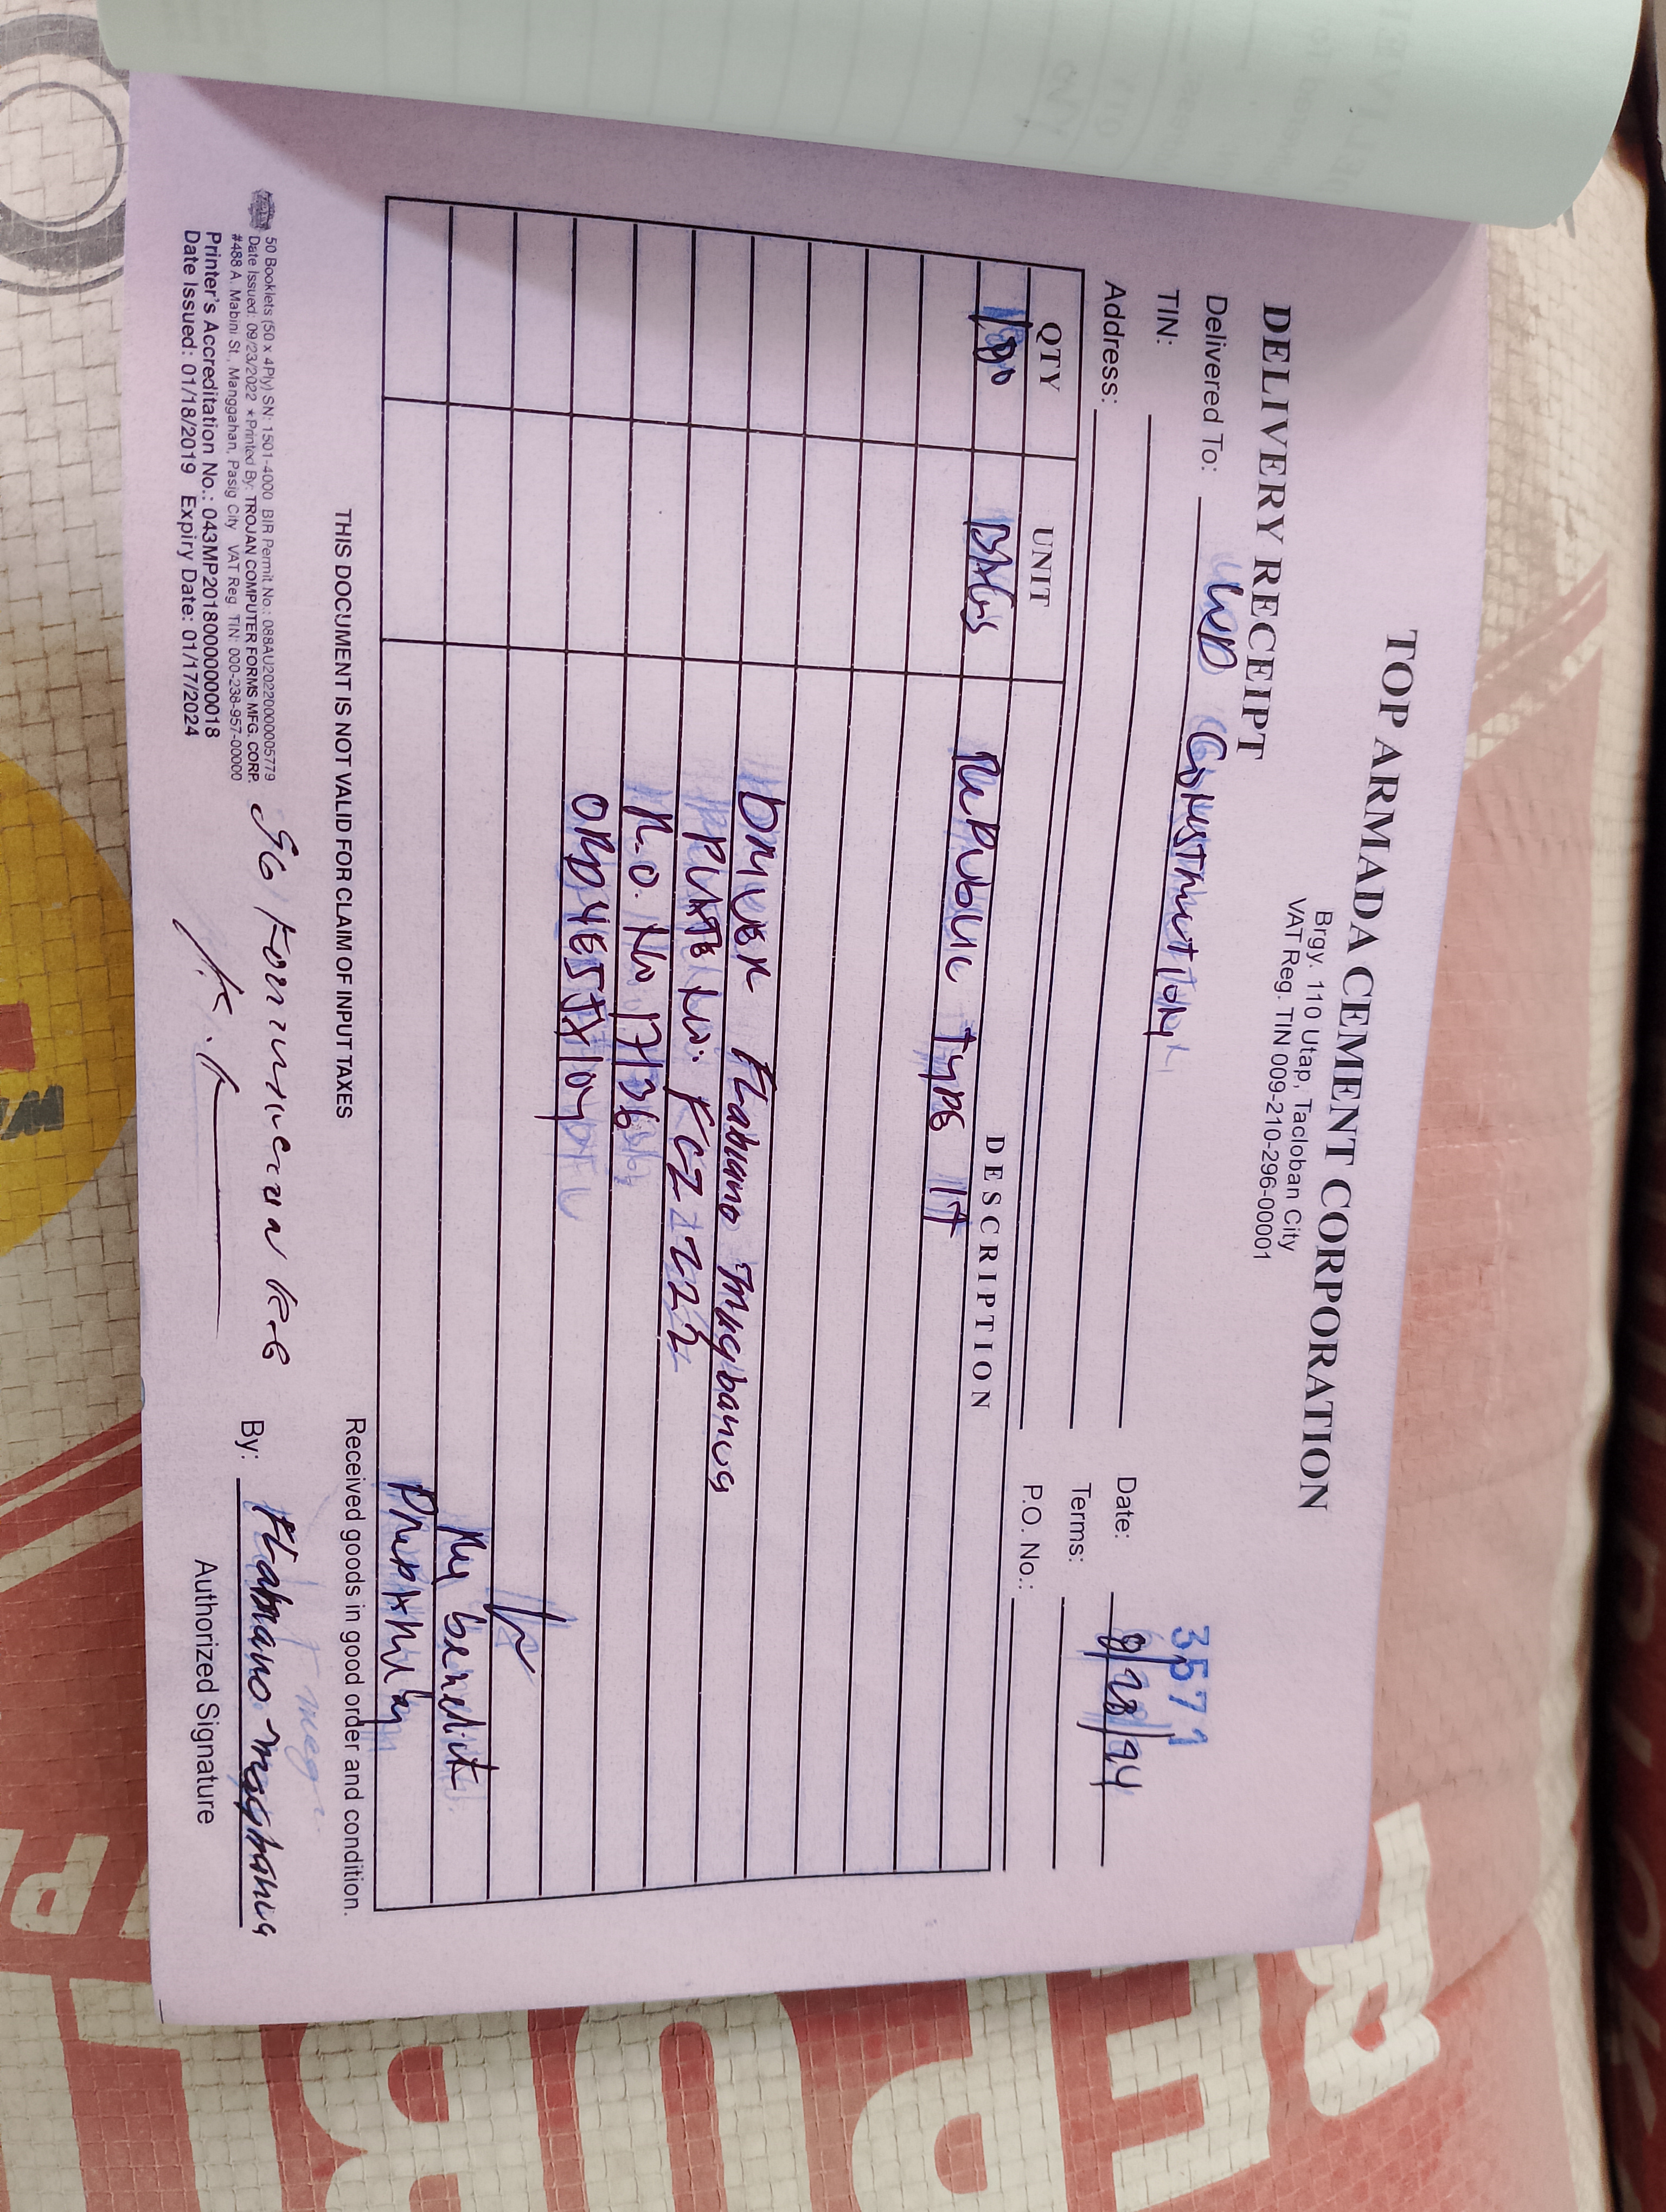 TOP ARMADA CEMENT CORPORATION
Brgy. 110 Utap, Tacloban City
VAT Reg. TIN 009-210-296-00001
DELIVERY RECEIPT
3571
Delivered To: Construction
Date: 9/28/24
TIN:
Terms:
Address:
P.O. No.:
QTY UNIT DESCRIPTION
100 BAGS Republic Type 1T
Driver Flabiano Magbanua
Plate No. KCZ 222
R.O. No. 17136
Ry benedict
THIS DOCUMENT IS NOT VALID FOR CLAIM OF INPUT TAXES
Received goods in good order and condition.
50 Booklets (50 x 4Ply) SN: 1501-4000 BIR Permit No.: 088AU20220000005779
Date Issued: 09/23/2022 *Printed By: TROJAN COMPUTER FORMS MFG. CORP.
#488 A. Mabini St., Manggahan, Pasig City VAT Reg. TIN: 000-238-957-00000
Printer's Accreditation No.: 043MP20180000000018
Date Issued: 01/18/2019 Expiry Date: 01/17/2024
By: Flabiano Magbanua
Authorized Signature